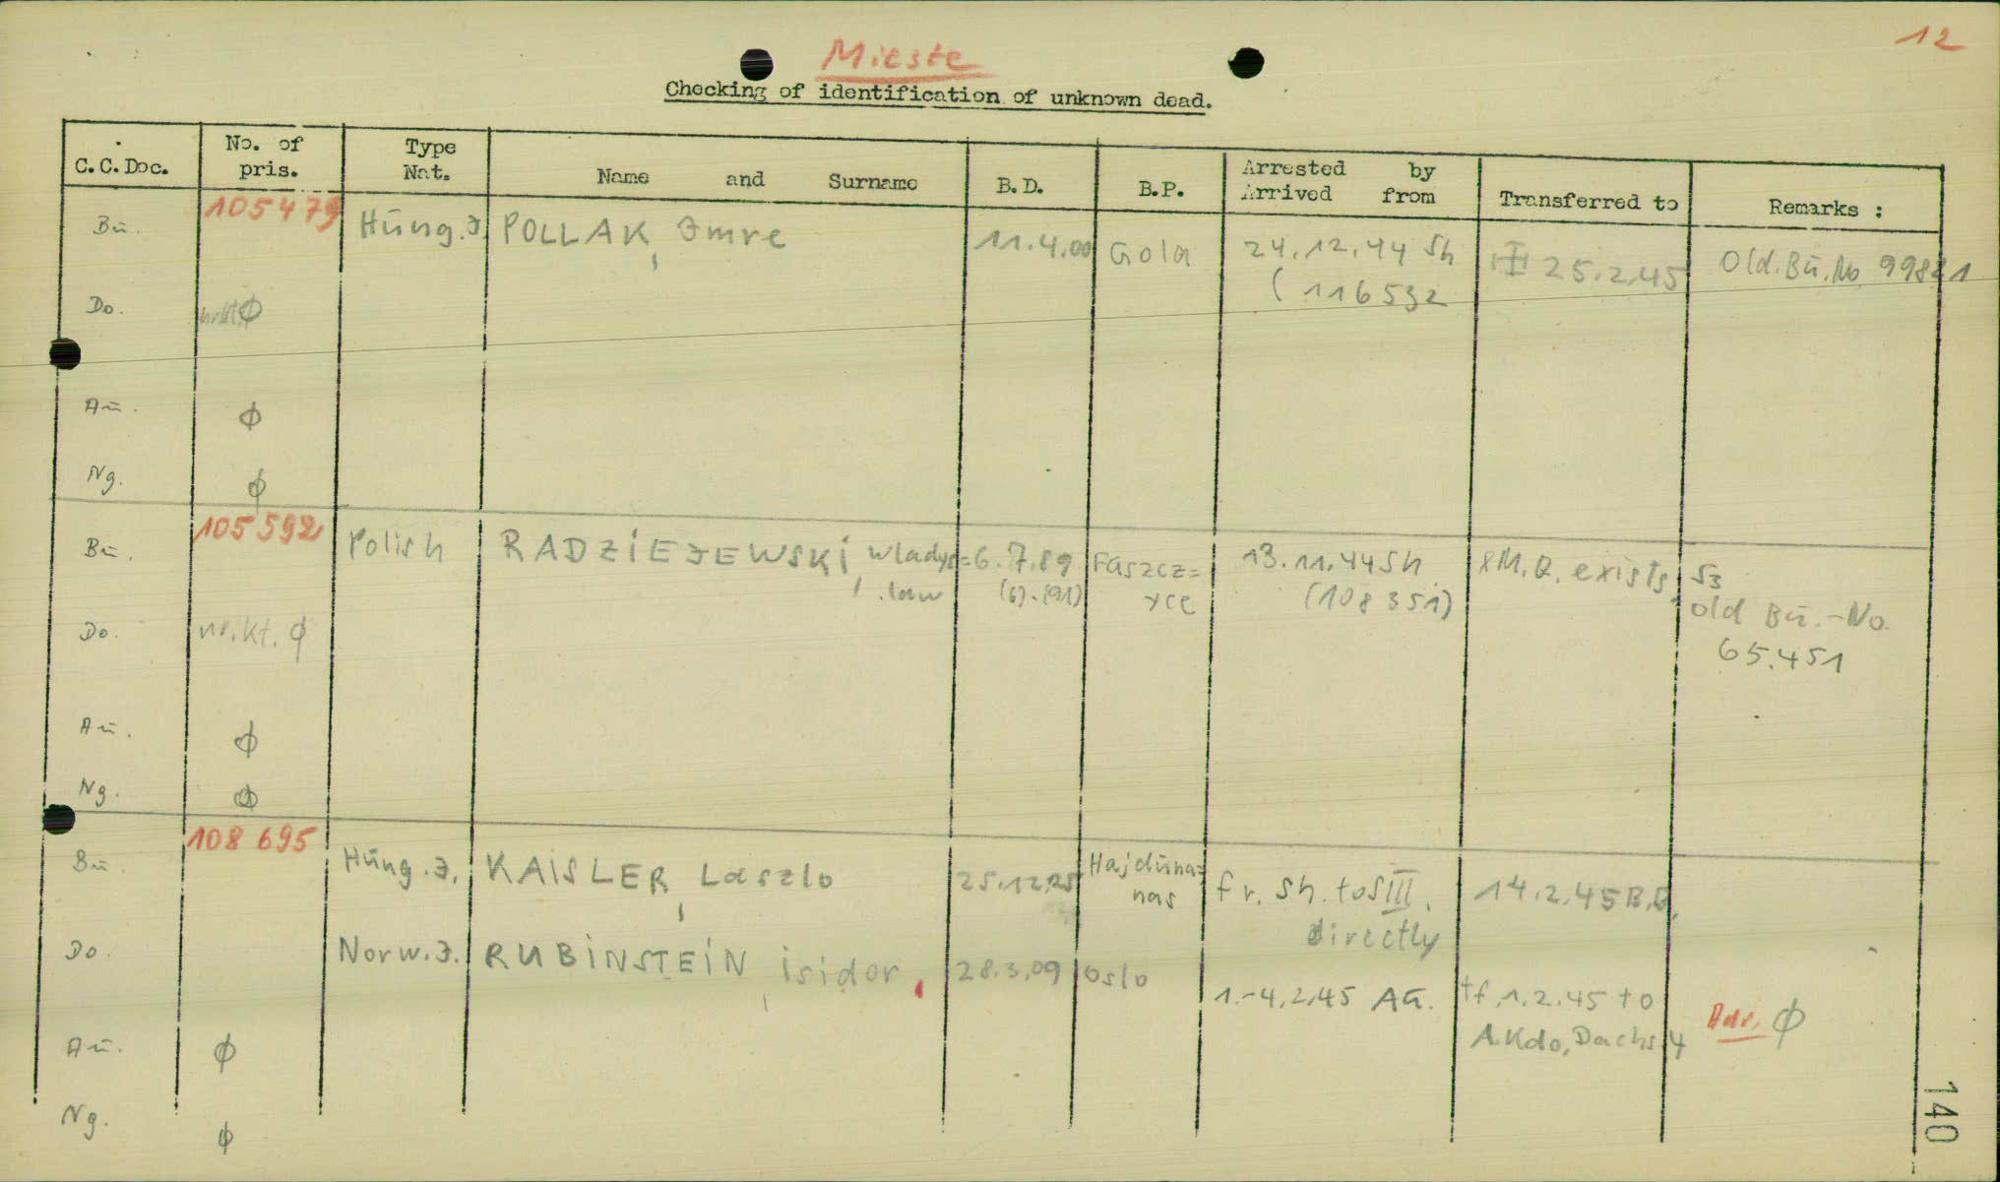 12
Mieste
Checking of identification of unknown dead.
C.C.Doc. No. of pris. Type Nat. Name and Surname B.D. B.P. Arrested by Arrived from Transferred to Remarks :
105479
Bü. Hüng.J. POLLAK, Imre 11.4.00 Gola 24.12.44 Sh 25.2.45 Old.Bü.No
( 116532
Do. Φ
Aü. Φ
Ng. Φ
105592
Bü. Polish RADZIEJEWSKI, Wladys= 6.7.89 Faszcz= 13.11.44 Sh M.Q. exists, S3
law yce (108351) old Bü.-No.
65.451
Do. nr.kt. Φ
Aü. Φ
Ng. Φ
108 695
Bü. Hüng.J. KAISLER, Laszlo 25.12.25 Hajdúna= fr. Sh. to SIII. 14.2.45 B.B.
nas directly
Do. Norw.J. RUBINSTEIN, isidor, 28.3.09 Oslo 1.-4.2.45 AG. tf.1.2.45 to
A.Kdo,Dachs 4 Φ
Aü. Φ
Ng. Φ
140